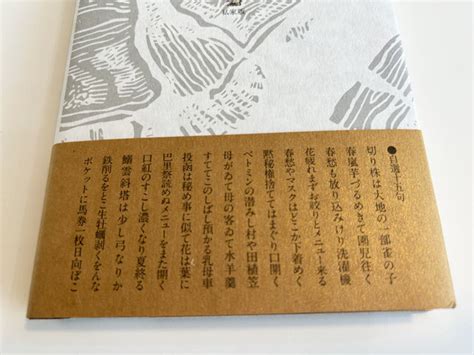 私家版
●自選十五句
切り株は大地の一部雀の子
春嵐芋づるめきて園児往く
春愁も放り込みけり洗濯機
花疲れまずお絞りとメニュー来る
春愁やマスクはどこか下着めく
黙秘権捨ててはまぐり口開く
ベトミンの潜みし村や田植笠
母がゐて母の客ゐて水羊羹
すててこのしばし預かる乳母車
投函は秘め事に似て花は葉に
巴里祭読めぬメニューをまた開く
口紅のすこし濃くなり夏終る
鰯雲斜塔は少し弓なりか
鉄削るをとこ生牡蠣剥くをんな
ポケットに馬券一枚日向ぼこ